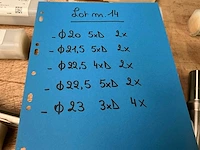 Lot m. 14
- Φ20 5xD 2x
- Φ21,5 5xD 2x
- Φ22,5 4xD 2x
- Φ22,5 5xD 2x
- Φ23 3xD 4x